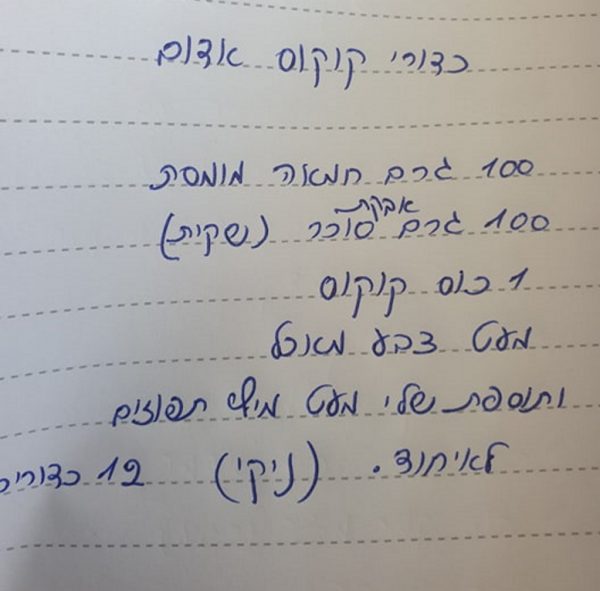 כדורי קוקוס אדום
100 גרם חמאה מומסת
100 גרם אבקת סוכר (שקית)
1 כוס קוקוס
מעט צבע מאכל
ותוספת שלי מעט מיץ תפוזים
לאיחוד. (ניקי) 12 כדורים